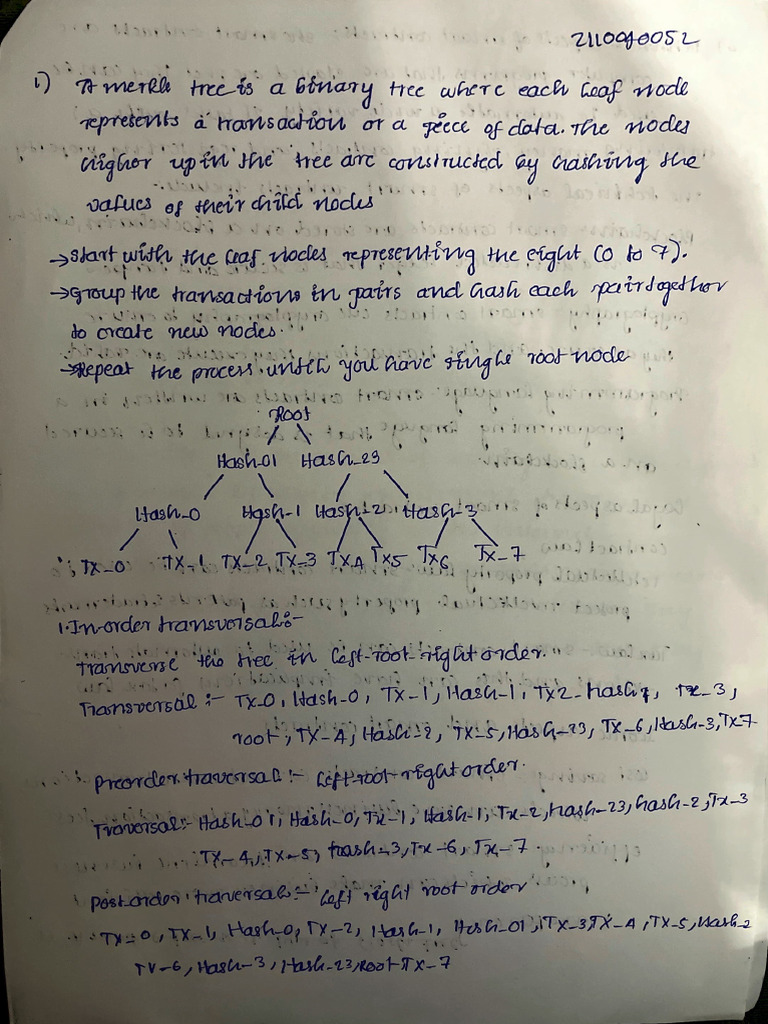 2110090052
1) A merkle tree is a binary tree where each leaf node
represents a transaction or a piece of data. The nodes
higher up in the tree are constructed by hashing the
values of their child nodes
→ Start with the leaf nodes representing the eight (0 to 7).
→ Group the transactions in pairs and hash each pair together
to create new nodes.
→ Repeat the process until you have single root node
Root
Hash-01 Hash-23
Hash-0 Hash-1 Hash-2 Hash-3
Tx-0 Tx-1 Tx-2 Tx-3 Tx4 Tx5 Tx6 Tx-7
1. In-order transversal:-
Transverse the tree in left-root-right order.
Transversal :- Tx-0, Hash-0, Tx-1, Hash-1, Tx2-Hash1, Tx-3,
root, Tx-4, Hash-2, Tx-5, Hash-23, Tx-6, Hash-3, Tx7
Preorder traversal :- Left-root-right order.
Traversal:- Hash-01, Hash-0, Tx-1, Hash-1, Tx-2, hash-23, hash-2, Tx-3
Tx-4, Tx-5, hash-3, Tx-6, Tx-7
Postorder traversal:- Left right root order
Tx-0, Tx-1, Hash-0, Tx-2, Hash-1, Hash-01, Tx-3, Tx-4, Tx-5, Hash-2
Tx-6, Hash-3, Hash-23, Root-Tx-7